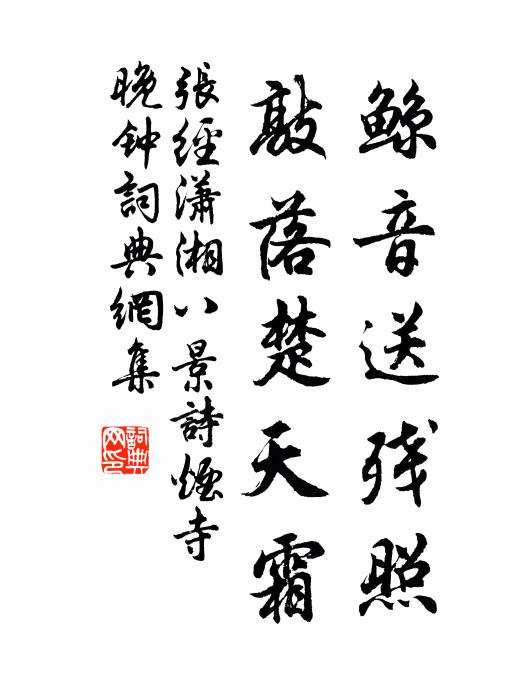 鲸音送残照
敲落楚天霜
張經瀟湘八景詩煙寺
晚钟詞典網集
詞典
网印